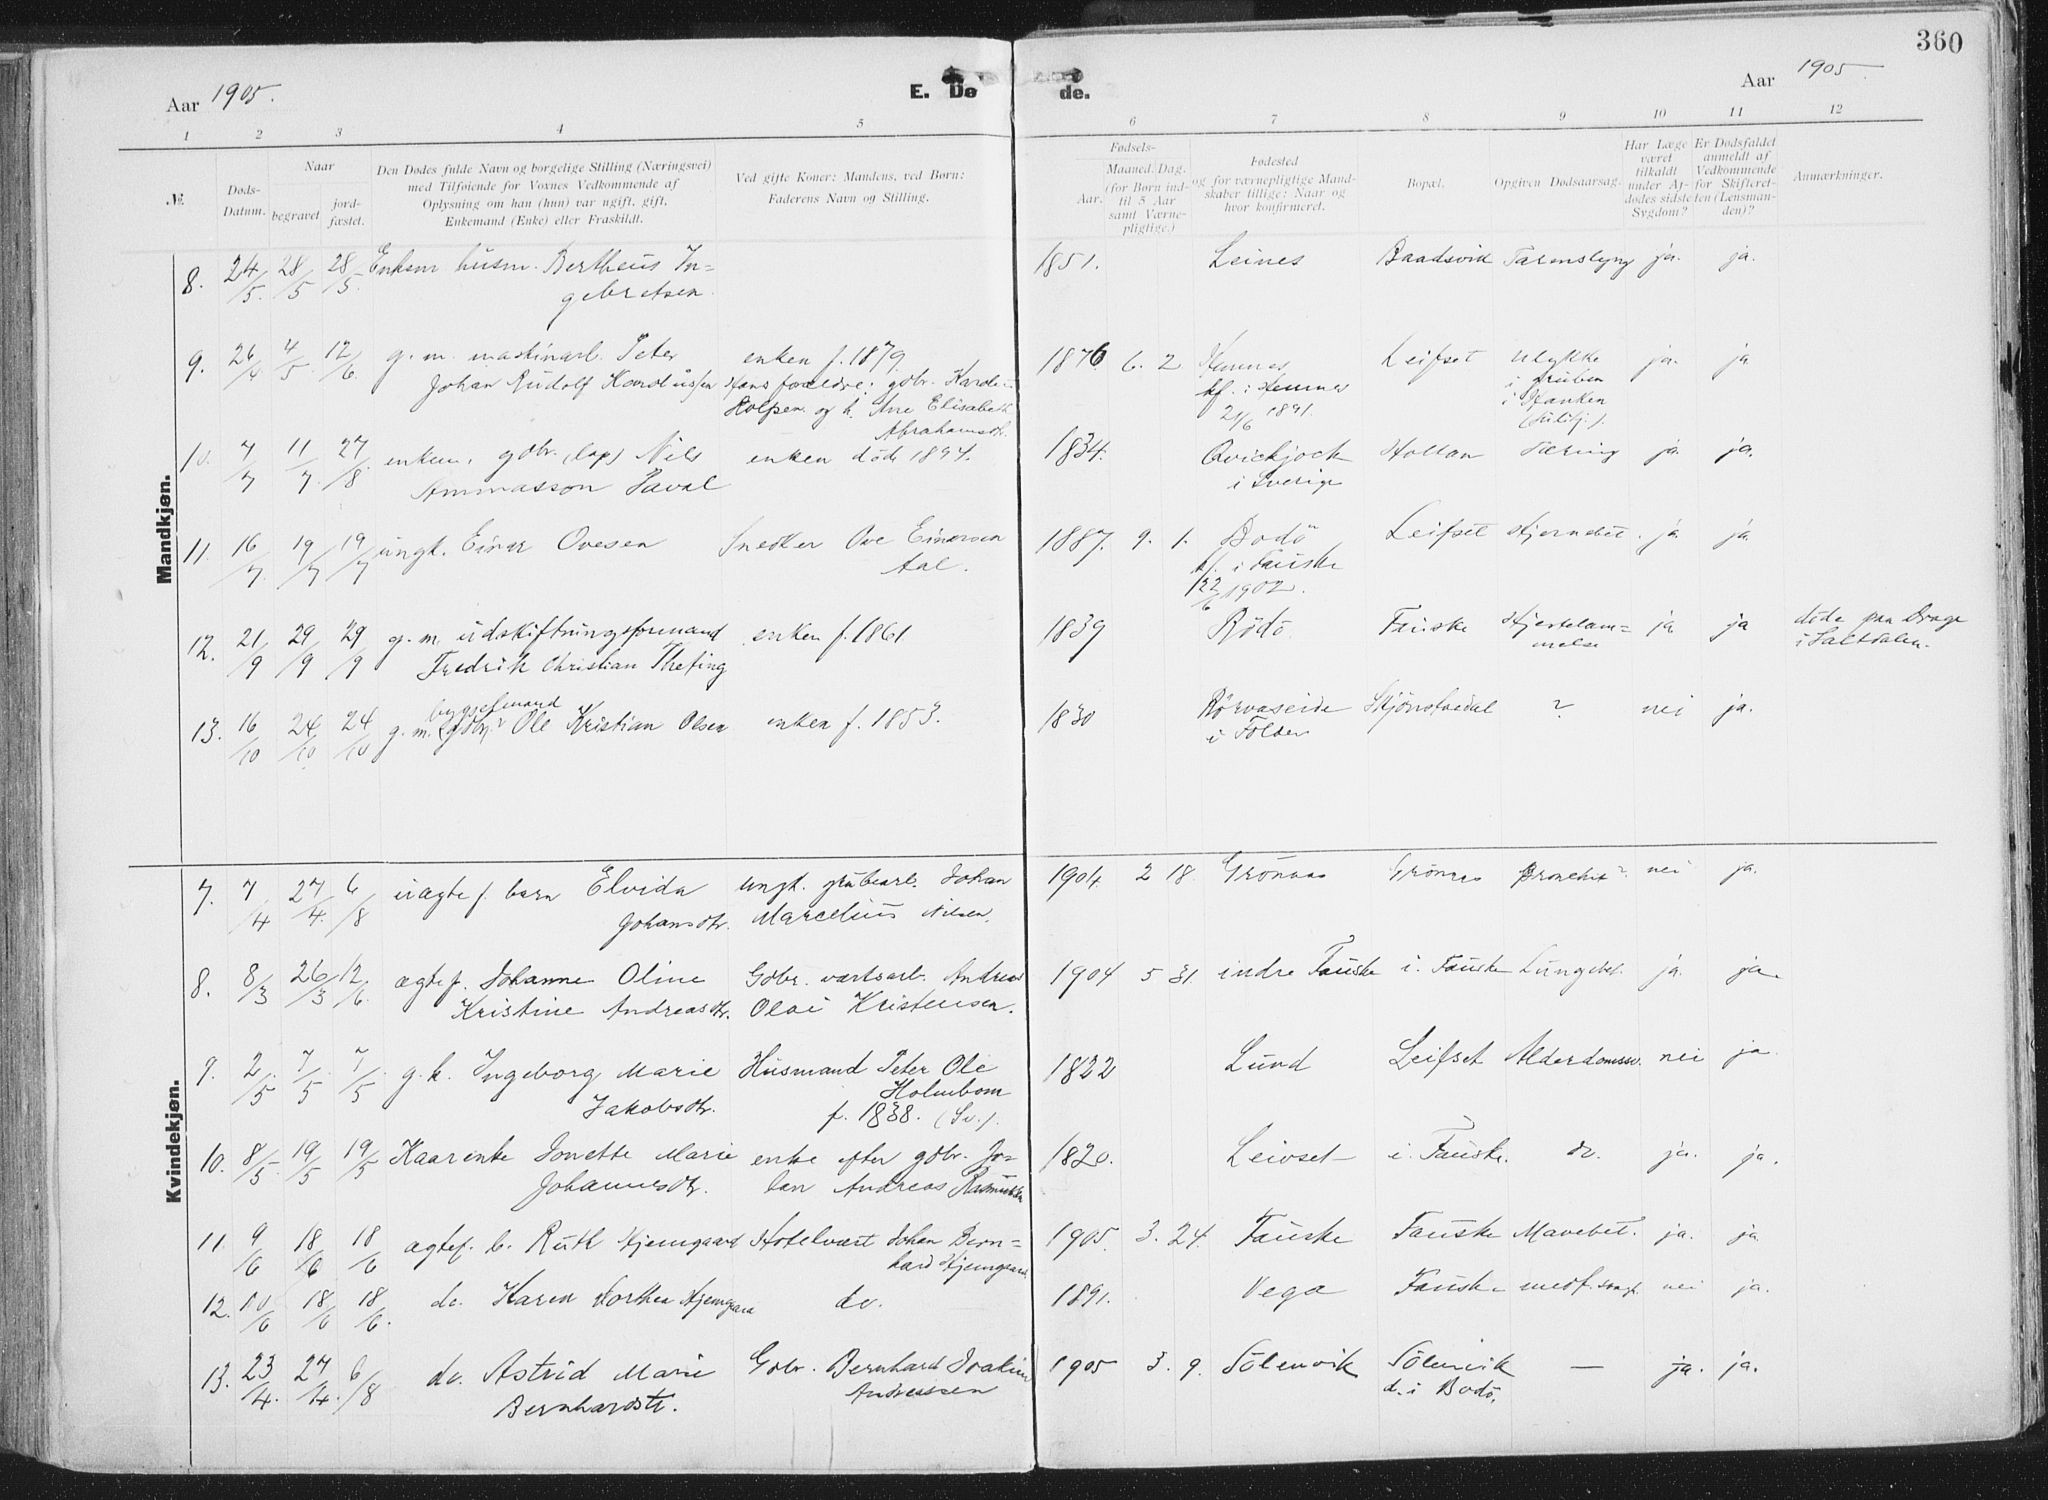 360
Aar 1905.
E. Dø de.
Aar 1905.
1 2 3 4 5 6 7 8 9 10 11 12
№
Døds-Datum.
Naar
begravet
jord-fæstet.
Den Dødes fulde Navn og borgelige Stilling (Næringsvei)
med Tilføiende for Voxnes Vedkommende af
Oplysning om han (hun) var ugift, gift,
Enkemand (Enke) eller Fraskildt.
Ved gifte Koner: Mandens, ved Børn:
Faderens Navn og Stilling.
Fødsels-
Aar.
Maaned. Dag.
(for Børn ind-
til 5 Aar
samt Værne-
pligtige.)
Fødested
og for værnepligtige Mand-
skaber tillige: Naar og
hvor konfirmeret.
Bopæl.
Opgiven Dødsaarsag.
Har Læge
været
tilkaldt
under Af-
dødes sidste
Sygdom?
Er Dødsfaldet
anmeldt af
Vedkommende
for Skifteret-
ten (Lensman-
den)?
Anmærkninger.
Mandkjøn.
8. 24/5. 28/5 28/5. Enkem husm. Bertheus In= 1851. Leines Baadsvik Tarmslyng ja. ja.
gebretsen.
9. 26/4 4/5. 12/6. g. m. maskinarb. Peter enken f. 1879. 1876 6. 2 Hemnes Leifset Ulykke ja. ja
Johan Rudolf Karoliussen Hans forældre: gdbr. Karoli- kf. i Hemnes i gruben
Holpsen og h. Ane Elisabeth 21/6 1891. i Hanken
Abrahamsdtr. (Sulitj.).
10. 7/7 11/7. 27/8. enkem. gdbr. (lap) Nils enken död 1894. 1834. Qvickjock Hollan Tæring ja ja.
Ammasson Paval i Sverige
11. 16/7 19/7 19/7 ungk. Einar Ovesen Snedker Ove Einarsen 1887. 9. 1. Bodö Leifset Hjernebet. ja ja
Aal. kf. i Fauske
22/6 1902.
12. 21/9 29/9 29/9 g. m. udskiftningsformand enken f. 1861 1839 Rödö. Fauske Hjertelam= ja ja döde paa Drage
Fredrik Christian Thesing melse i Saltdalen.
bygselmand
13. 16/10 24/10 24/10 g. m. (gdbr.? Ole Kristian Olsen enken f. 1853. 1830 Rörvaseide Skjönstuedal ? nei ja.
i Folden
Kvindekjøn.
7. 7/4 27/4. 6/8 uægtef. barn Elvida ungk. grubearb. Johan 1904 2 18. Grönnes Grönnes Bronchit? nei ja.
Johansdtr. Marcelius Nilsen.
8. 8/3 26/3 12/6. ægtef. Johanne Oline Gdbr. værtsarb. Andreas 1904 5 31. indre Fauske i. Fauske Lungebet. ja. ja.
Kristine Andreasdtr. Olai Kristensen.
9. 2/5 7/5 7/5 g. k. Ingeborg Marie Husmand Peter Ole 1822 Lund Leifset Alderdomssv. nei ja.
Jakobsdtr. Holmbom
f. 1838. (Sv.).
10. 8/5. 19/5 19/5 Kaarenke Jonette Marie enke efter gdbr. Jo= 1820. Leivset i. Fauske. do. ja. ja.
Johannesdtr. han Andreas Rasmussen
11. 9/6 18/6 18/6 ægtef. b. Ruth Hjemgaard Hotelvært Johan Bern= 1905. 3. 24. Fauske Fauske Mavebet. ja. ja.
hard Hjemgaard.
12. 10/6 18/6 18/6. do. Karen Dorthea Hjemgaard do. 1891. Vega Fauske medf. svagh. nei ja.
13. 23/4. 27/4. 6/8 do. Astrid Marie Gdbr. Bernhard Joakim 1905 3. 9. Tölenvik Tölenvik — ja. ja.
Bernhardsdtr. Andreassen d. i Bodö.